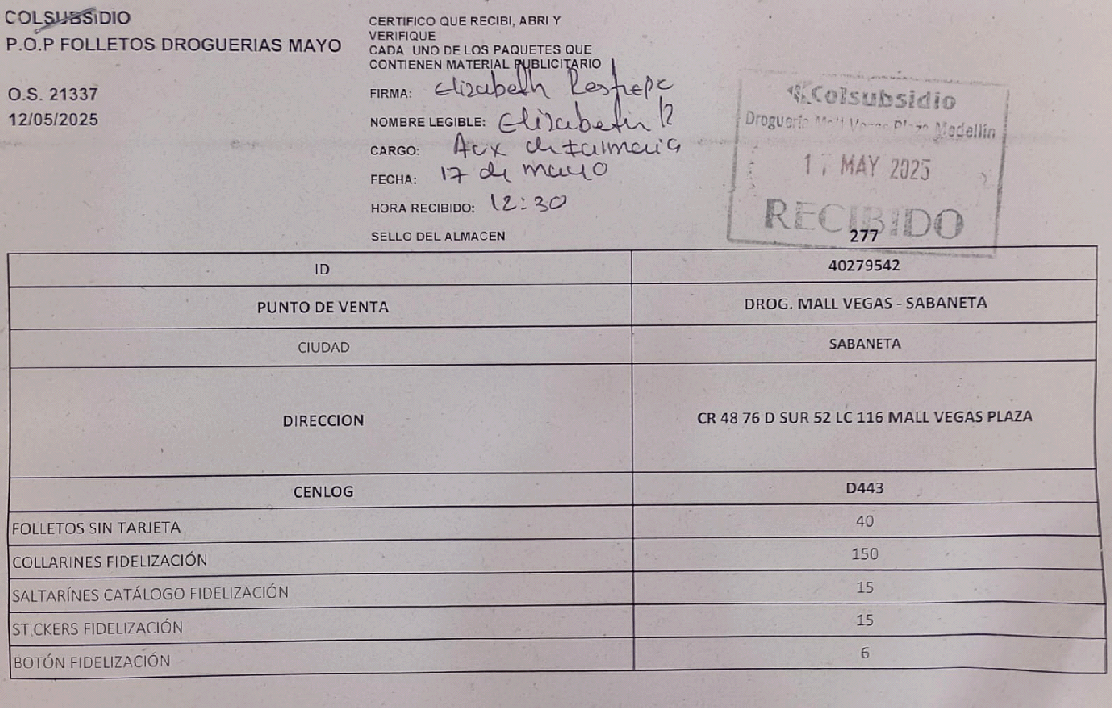 COLSUBSIDIO
P.O.P FOLLETOS DROGUERIAS MAYO
O.S. 21337
12/05/2025
CERTIFICO QUE RECIBI, ABRI Y
VERIFIQUE
CADA UNO DE LOS PAQUETES QUE
CONTIENEN MATERIAL PUBLICITARIO
FIRMA: Elizabeth Restrepo
NOMBRE LEGIBLE: Elizabeth R
CARGO: Aux de farmacia
FECHA: 17 de mayo
HORA RECIBIDO: 12:30
SELLO DEL ALMACEN
Colsubsidio
Droguería Mall Vegas Plaza Medellín
17 MAY 2025
RECIBIDO
277
ID 40279542
PUNTO DE VENTA DROG. MALL VEGAS - SABANETA
CIUDAD SABANETA
DIRECCION CR 48 76 D SUR 52 LC 116 MALL VEGAS PLAZA
CENLOG D443
FOLLETOS SIN TARJETA 40
COLLARINES FIDELIZACIÓN 150
SALTARÍNES CATÁLOGO FIDELIZACIÓN 15
STICKERS FIDELIZACIÓN 15
BOTÓN FIDELIZACIÓN 6